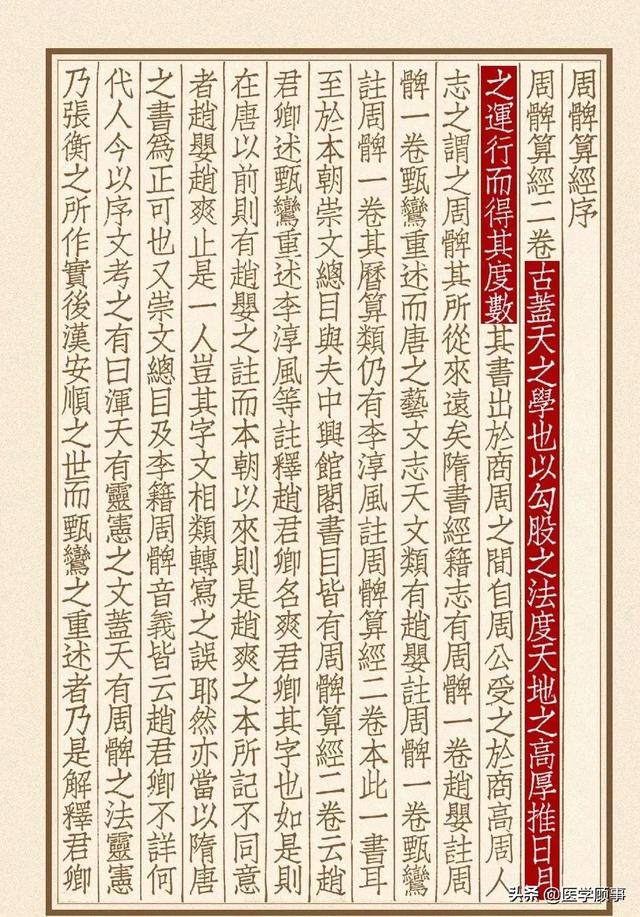 周髀算經序
周髀算經二卷古蓋天之學也以勾股之法度天地之高厚推日月
之運行而得其度數其書出於商周之間自周公受之於商高周人
志之謂之周髀其所從來遠矣隋書經籍志有周髀一卷趙嬰註周
髀一卷甄鸞重述而唐之藝文志天文類有趙嬰註周髀一卷甄鸞
註周髀一卷其曆算類仍有李淳風註周髀算經二卷本此一書耳
至於本朝崇文總目與夫中興館閣書目皆有周髀算經二卷云趙
君卿述甄鸞重述李淳風等註釋趙君卿名爽君卿其字也如是則
在唐以前則有趙嬰之註而本朝以來則是趙爽之本所記不同意
者趙嬰趙爽止是一人豈其字文相類轉寫之誤耶然亦當以隋唐
之書爲正可也又崇文總目及李籍周髀音義皆云趙君卿不詳何
代人今以序文考之有曰渾天有靈憲之文蓋天有周髀之法靈憲
乃張衡之所作實後漢安順之世而甄鸞之重述者乃是解釋君卿
头条 @医学顾事